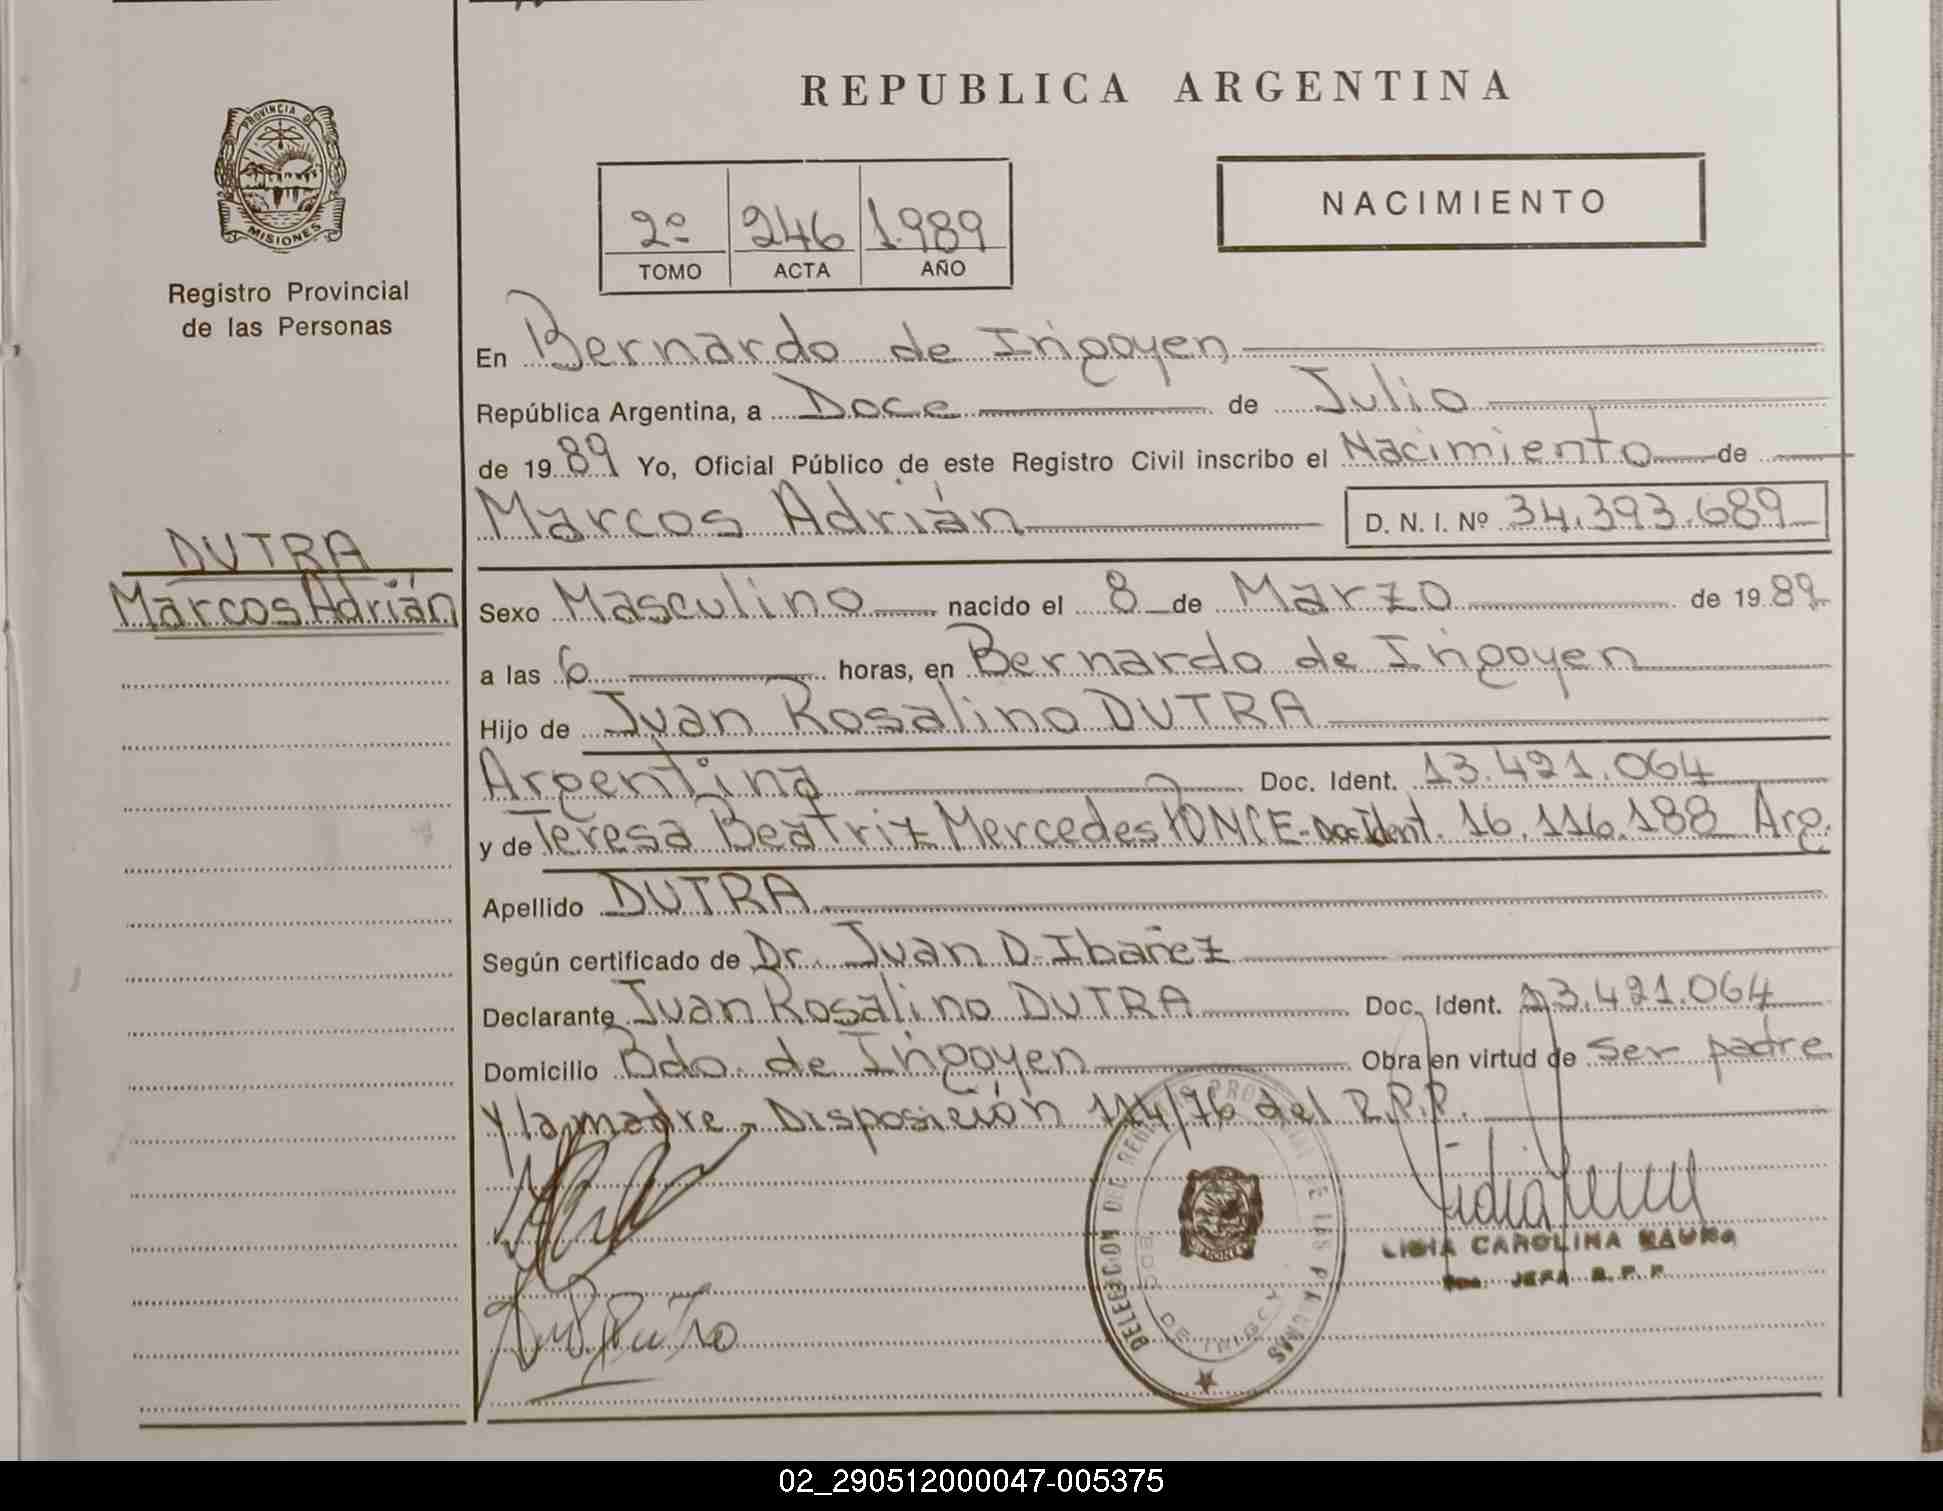 REPUBLICA ARGENTINA
PROVINCIA DE
MISIONES
Registro Provincial
de las Personas
2º 246 1.989
TOMO ACTA AÑO
NACIMIENTO
En Bernardo de Irigoyen
República Argentina, a Doce de Julio
de 19 89 Yo, Oficial Público de este Registro Civil inscribo el Nacimiento de
Marcos Adrián D. N. I. Nº 34.393.689
DUTRA
Marcos Adrián
Sexo Masculino nacido el 8 de Marzo de 19 89
a las 6 horas, en Bernardo de Irigoyen
Hijo de Juan Rosalino DUTRA
Argentina Doc. Ident. 13.421.064
y de Teresa Beatriz Mercedes PONCE-Doc Ident. 16.116.188 Arg.
Apellido DUTRA
Según certificado de Dr. Juan D. Ibañez
Declarante Juan Rosalino DUTRA Doc. Ident. 13.421.064
Domicilio Bdo. de Irigoyen Obra en virtud de ser padre
y la madre - Disposición 114/76 del R.P.P.
DELEGACION DEL REGISTRO PROVINCIAL DE LAS PERSONAS
BDO DE IRIGOYEN
MISIONES
LIDIA CAROLINA
JEFA R. P. P.
02_290512000047-005375